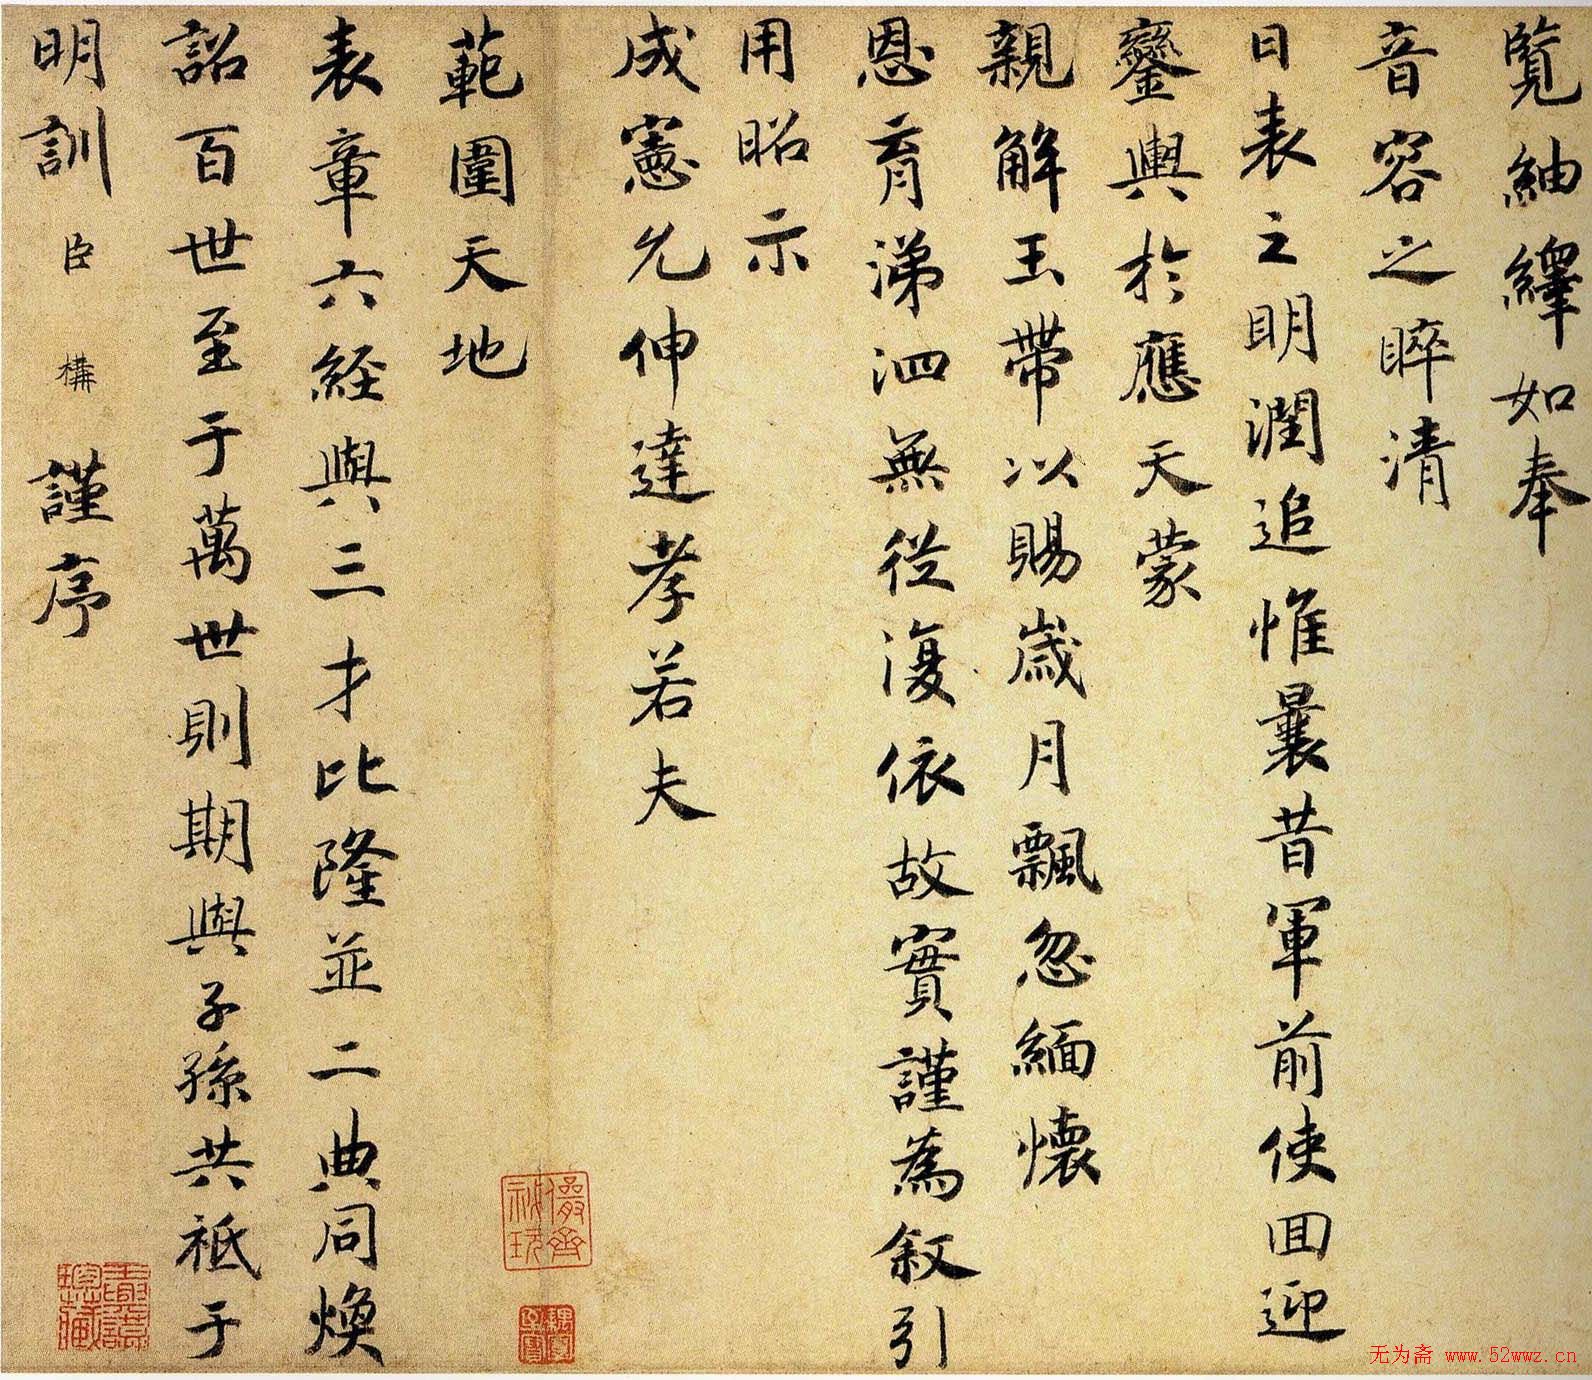 覽紬繹如奉
音容之睟清
日表之明潤追惟曩昔軍前使回迎
鑾輿於應天蒙
親解玉帶以賜歲月飄忽緬懷
恩育涕泗無從復依故實謹為叙引
用昭示
成憲允伸達孝若夫
範圍天地
表章六經與三才比隆並二典同煥
詔百世至于萬世則期與子孫共祗于
明訓臣構謹序
无为斋 www.52wwz.cn